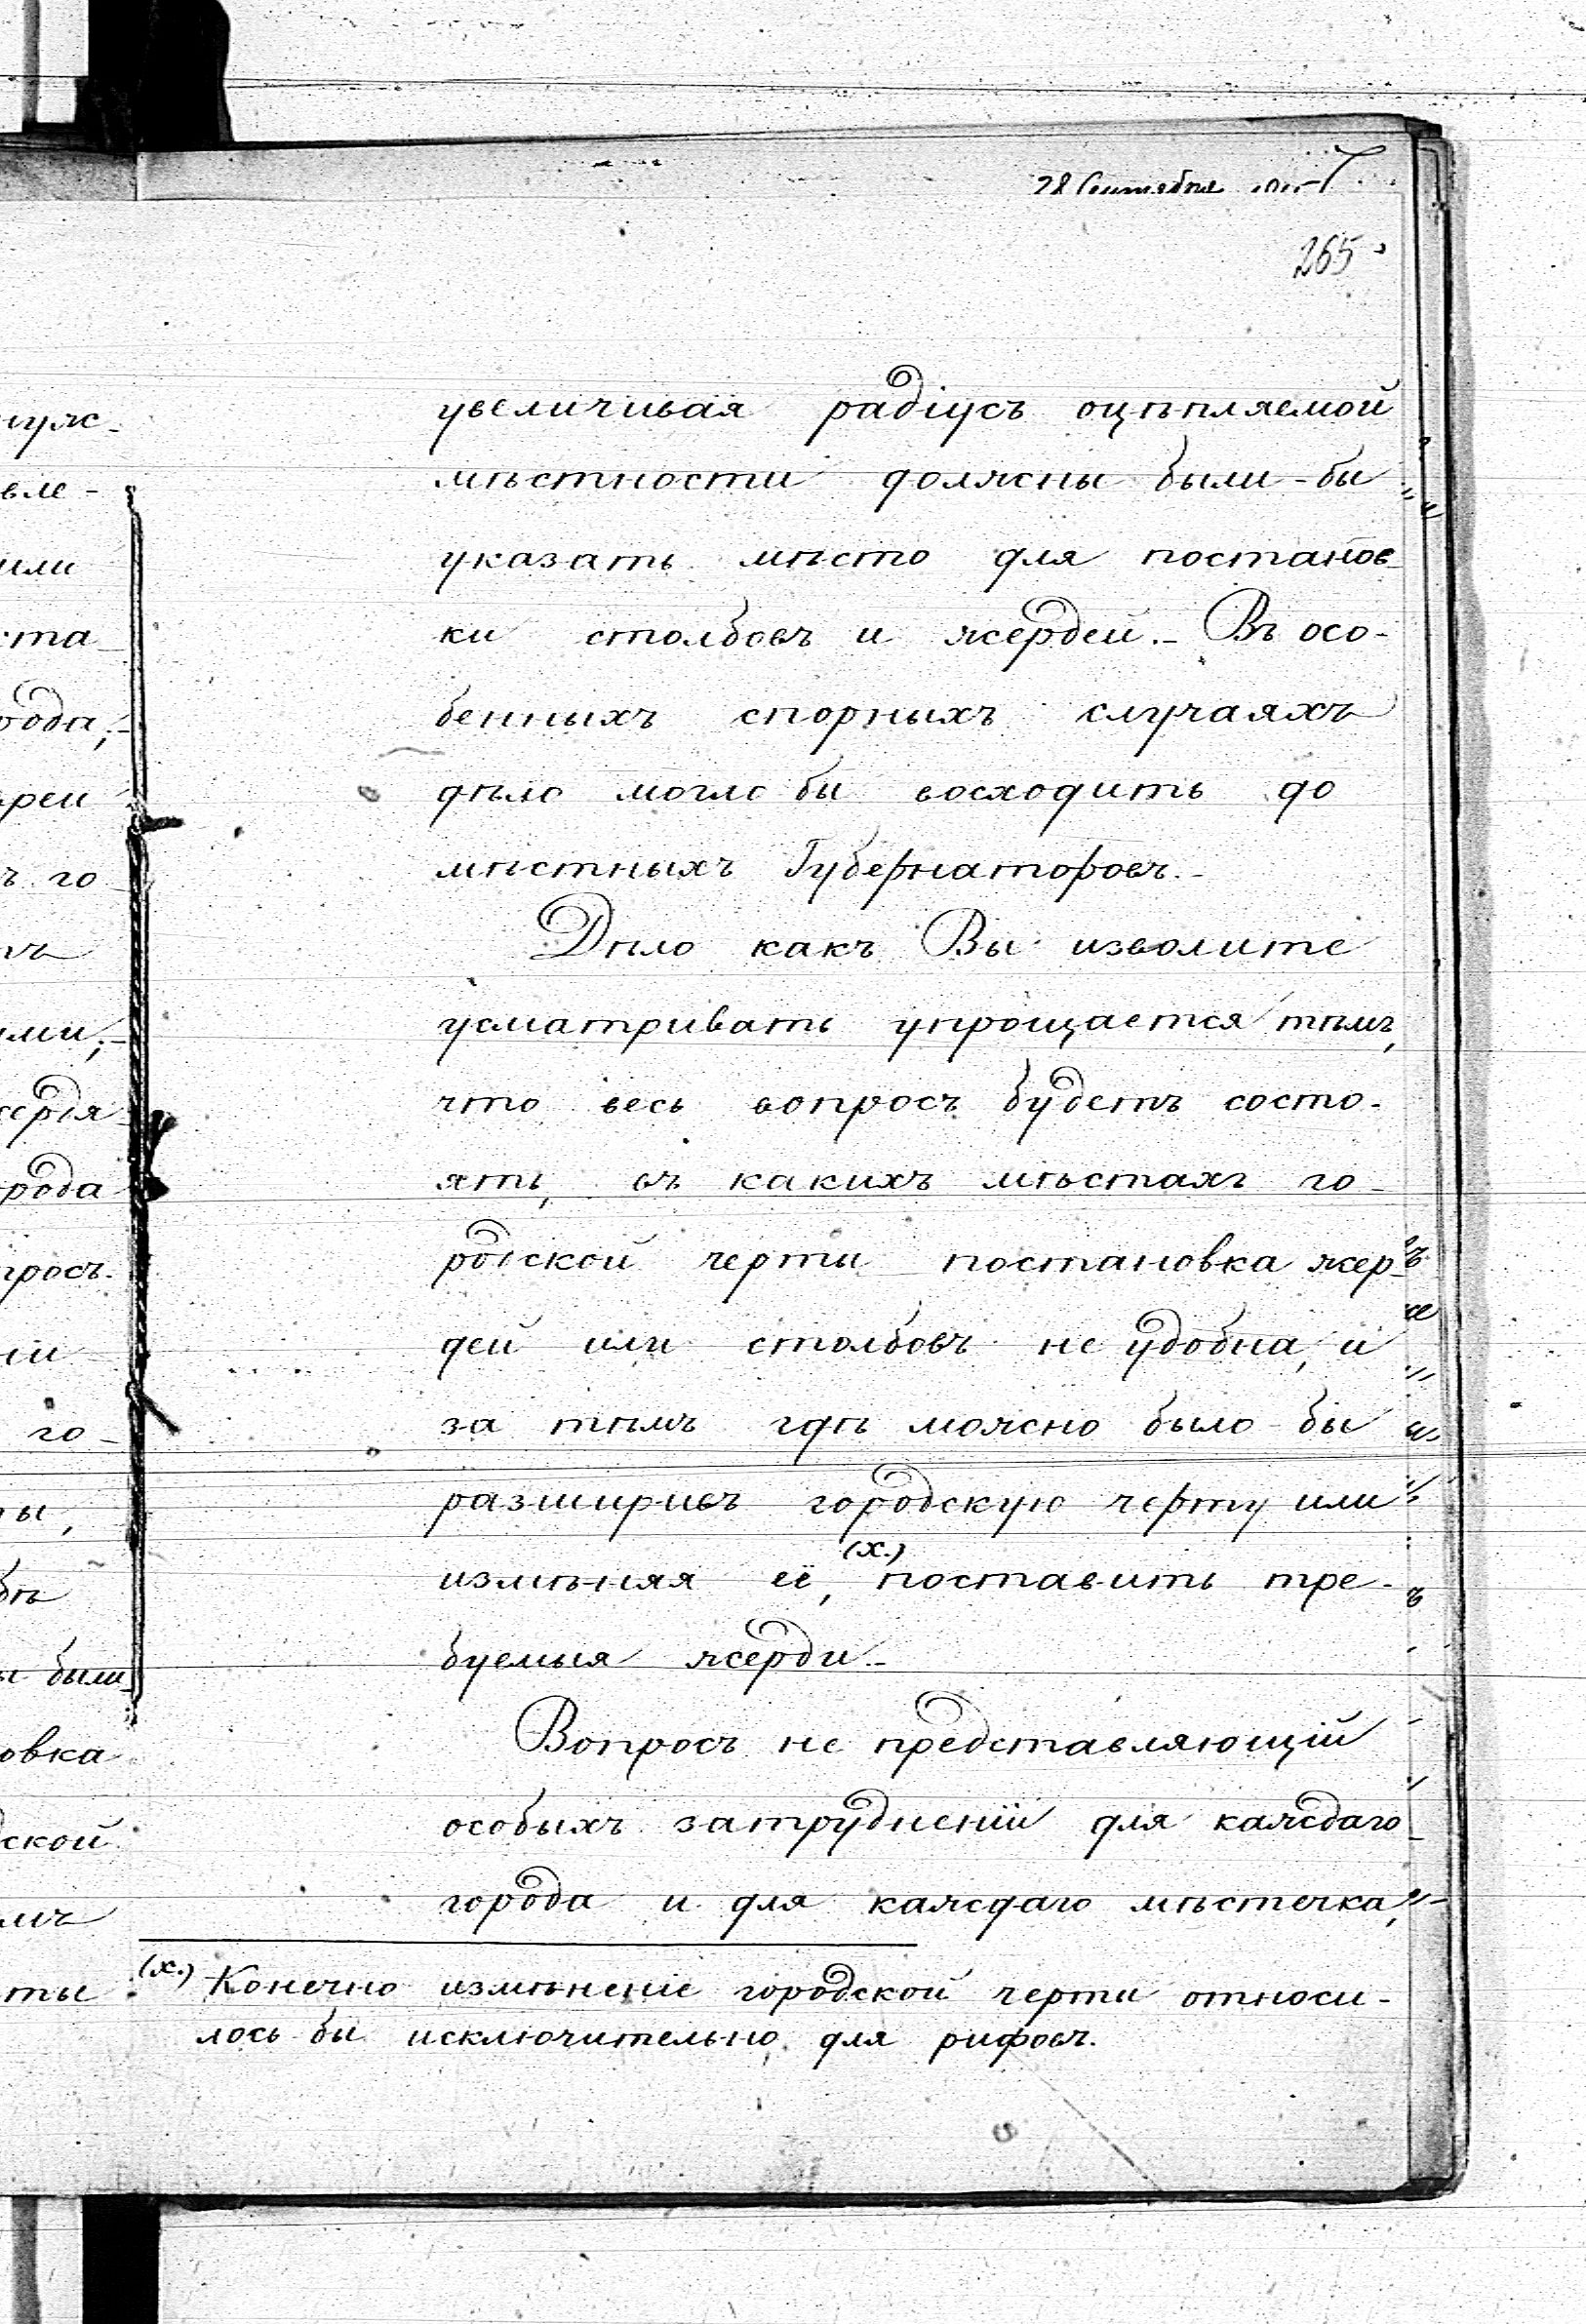 28 Сентября
265
увеличивая радіусъ оцѣпляемой
мѣстности должны были-бы
указать мѣсто для постанов-
ки столбовъ и жердей.- Въ осо-
бенныхъ спорныхъ случаяхъ
дѣло могло бы восходить до
мѣстныхъ Губернаторовъ.-
Дѣло какъ Вы изволите
усматривать упрощается тѣмъ,
что весь вопросъ будетъ состо-
ять, въ какихъ мѣстахъ го-
родской черты постановка жер-
дей или столбовъ не удобна, и
за тѣмъ гдѣ можно было-бы
разширивъ городскую черту или
измѣняя её, (х.) поставить тре-
буемыя жерди.-
Вопросъ не представляющій
особыхъ затрудненій для каждаго
города и для каждаго мѣстечка,-
(х.) Конечно измѣненіе городской черты относи-
лось-бы исключительно для рифовъ.